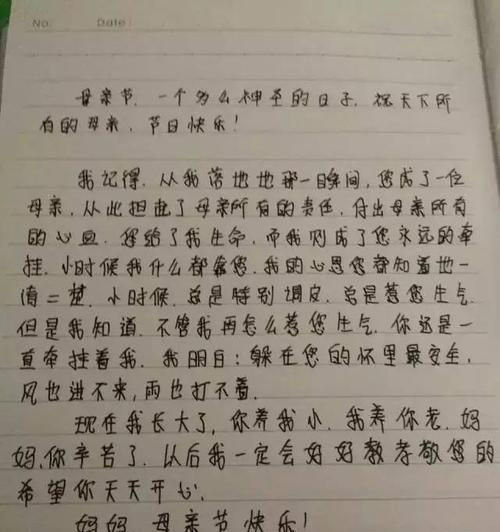 No.  Date:
母亲节.一个多么神圣的日子.祝天下所
有的母亲,节日快乐!
我记得.从我落地地那一瞬间,您成了一位
母亲,从此担起了母亲所有的责任.付出母亲所有
的心血.您给了我生命.而我则成了您永远的牵
挂.小时候我什么都靠您.我的心思您都知道地一
清二楚.小时候.总是特别调皮.总是惹您生气.
但是我知道.不管我再怎么惹您生气.你还是一
直牵挂着我.我明白:躲在您的怀里最安全,
风也进不来,雨也打不着.
现在我长大了,你养我小.我养你老.妈
妈,你辛苦了.以后我一定会好好教孝敬您的
希望你天天开心.
妈妈 母亲节快乐!